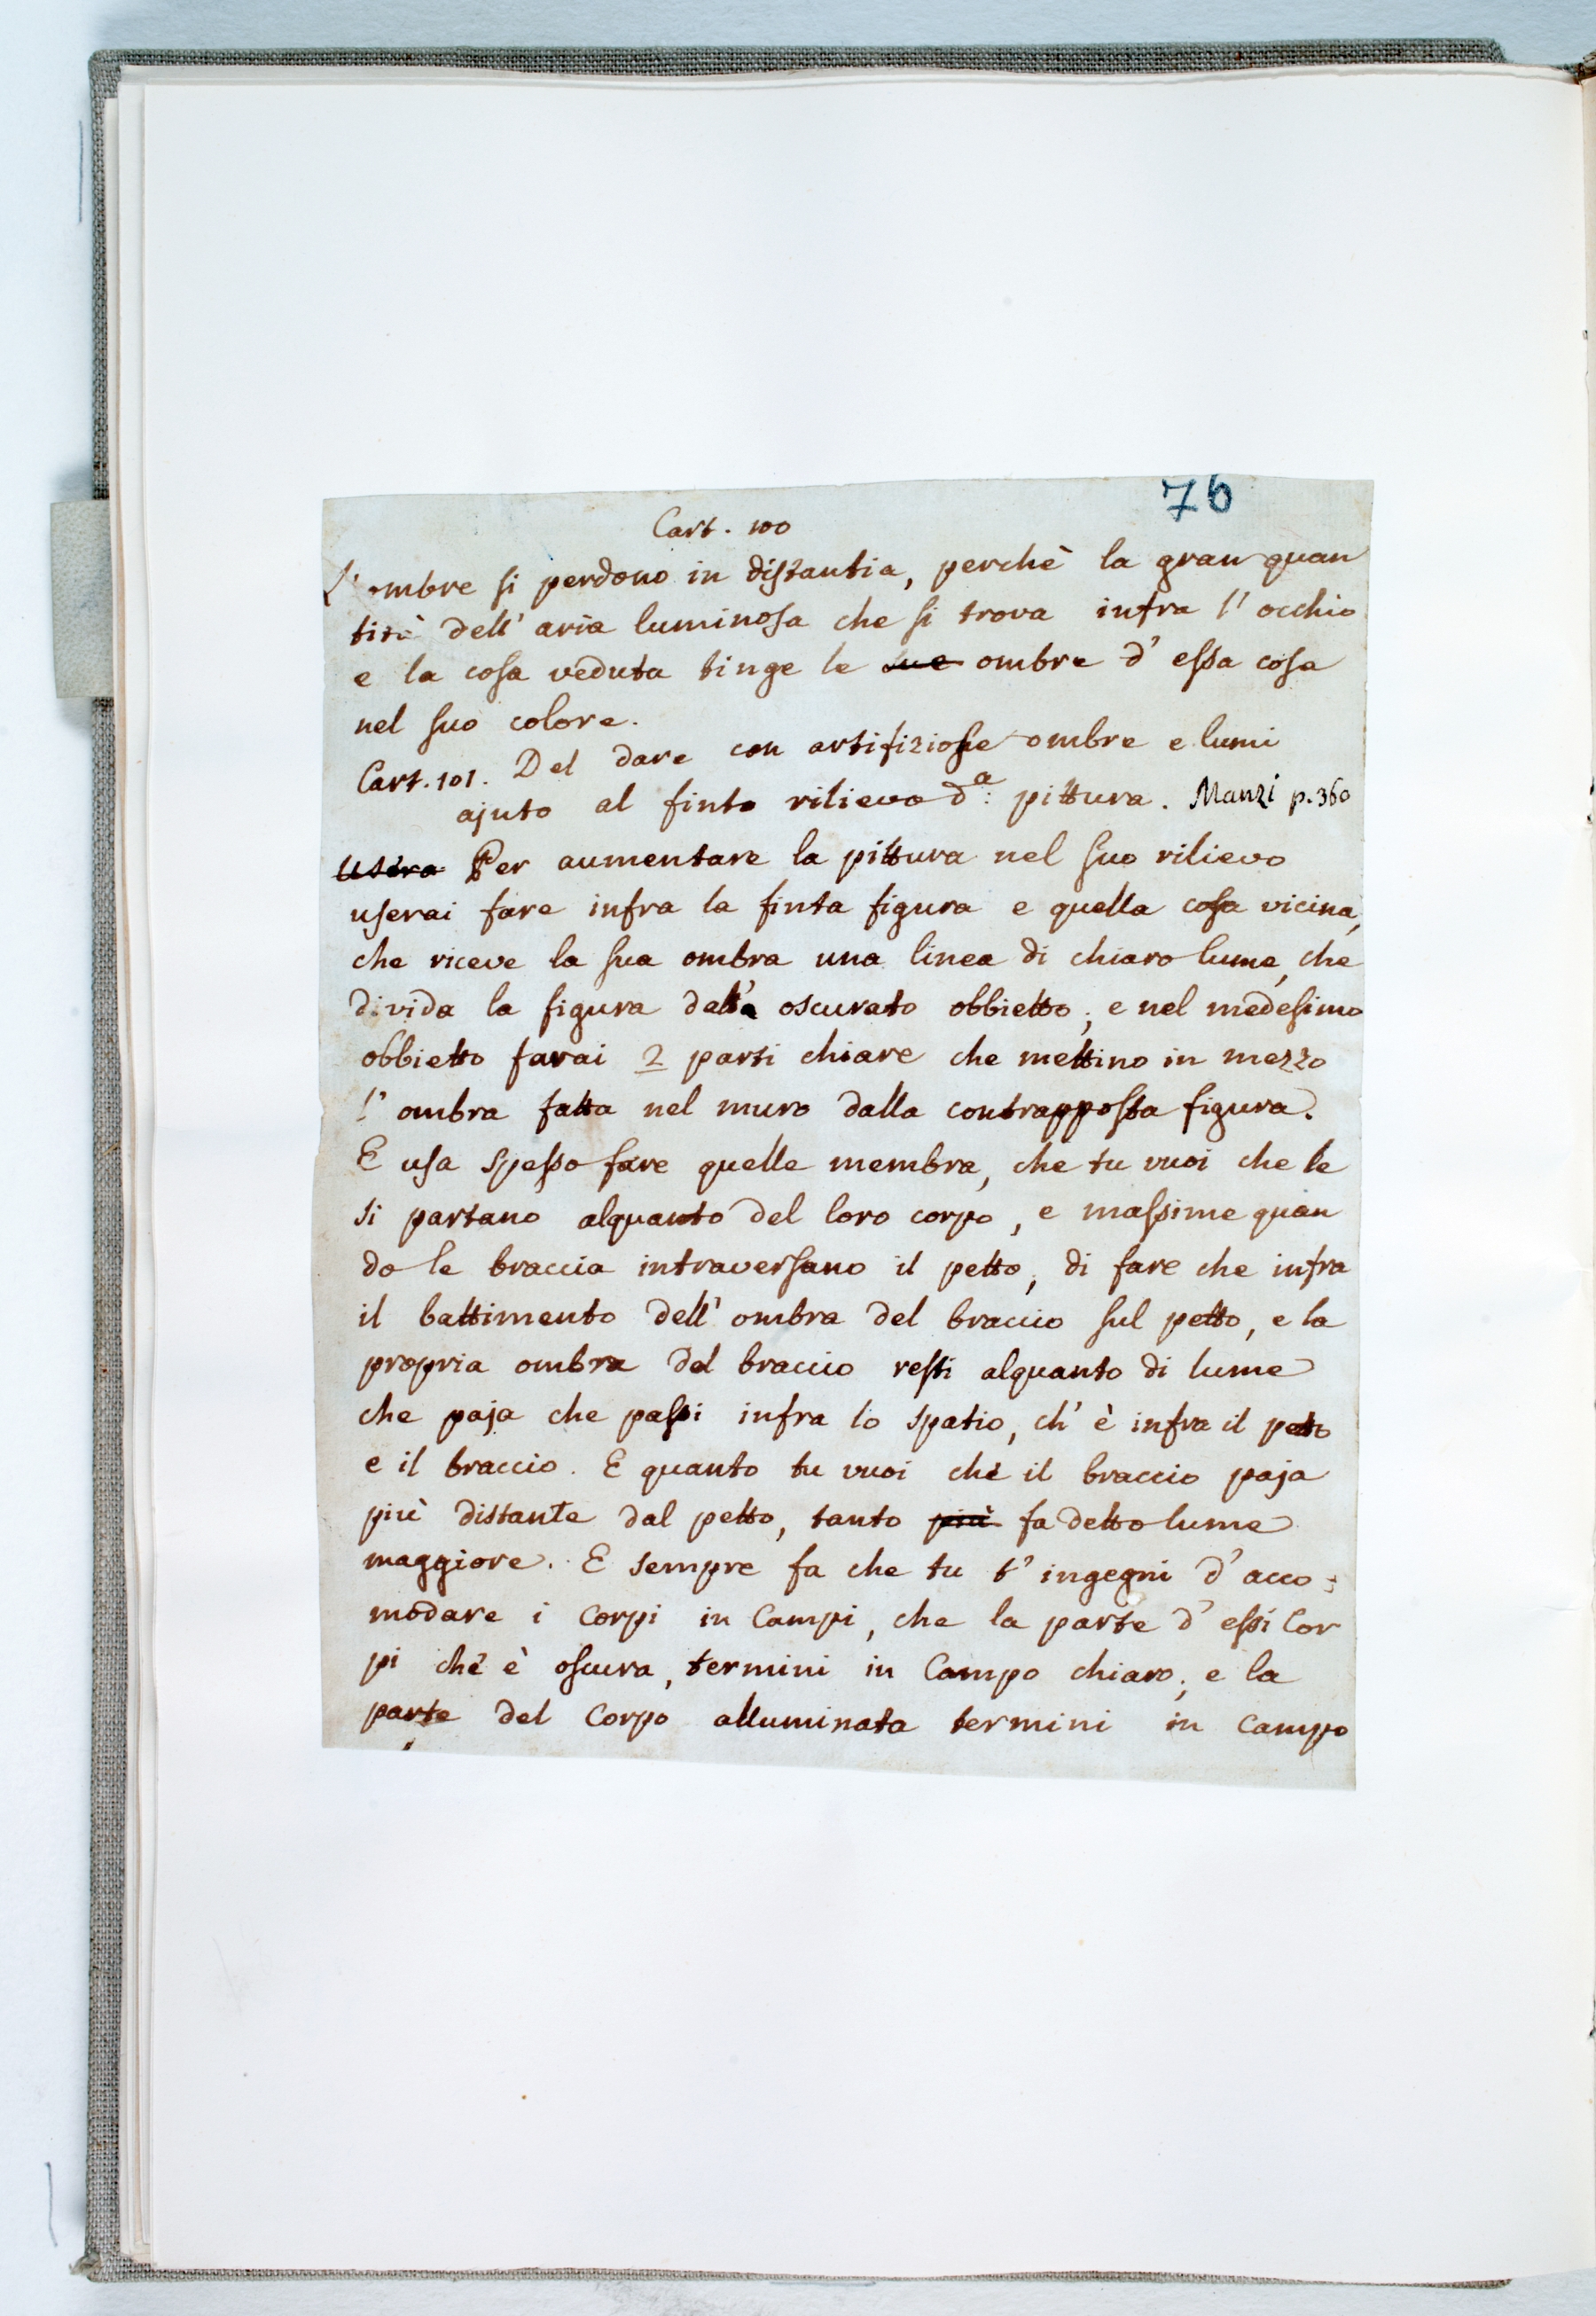 76
Cart. 100
L'ombre si perdono in distantia, perchè la gran quan
tità dell'aria luminosa che si trova infra l'occhio
e la cosa veduta tinge le sue ombre d'essa cosa
nel suo colore.
Cart. 101. Del dare con artifiziose ombre e lumi
ajuto al finto rilievo d.a pittura. Manzi p. 360
Usera Per aumentare la pittura nel suo rilievo
userai fare infra la finta figura e quella cosa vicina,
che riceve la sua ombra una linea di chiaro lume, che
divida la figura dall'a oscurato obbietto; e nel medesimo
obbietto farai 2 parti chiare che mettino in mezzo
l'ombra fatta nel muro dalla contrapposta figura.
E usa spesso fare quelle membra, che tu vuoi che le
si partano alquanto del loro corpo, e massime quan
do le braccia intraversano il petto, di fare che infra
il battimento dell'ombra del braccio sul petto, e la
propria ombra del braccio resti alquanto di lume
che paja che passi infra lo spatio, ch'è infra il petto
e il braccio. E quanto tu vuoi che il braccio paja
più distante dal petto, tanto più fa detto lume
maggiore. E sempre fa che tu t'ingegni d'acco:
modare i Corpi in Campi, che la parte d'essi Cor
pi che è oscura, termini in Campo chiaro; e la
parte del Corpo alluminata termini in Campo